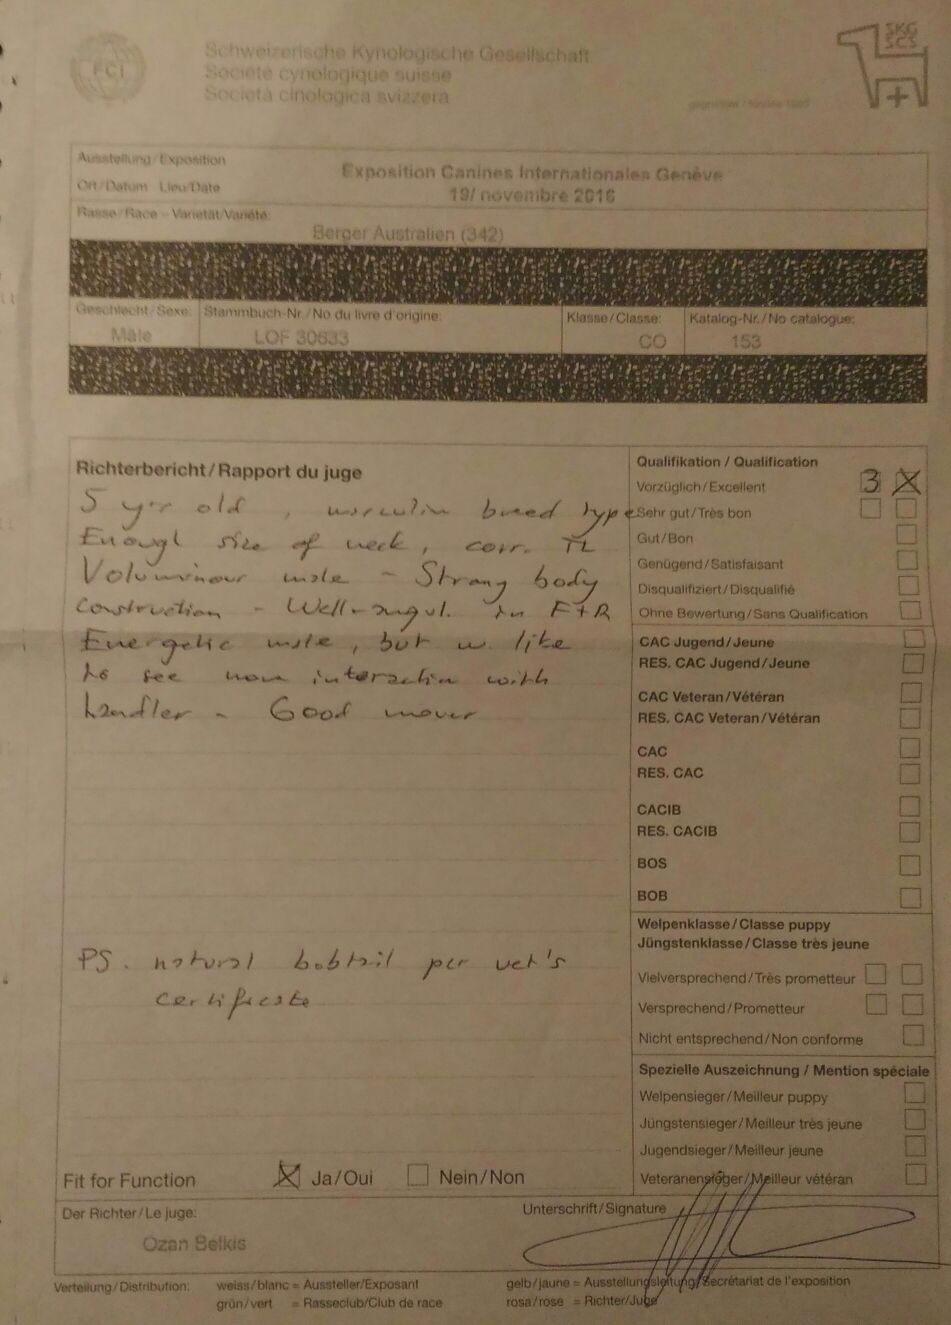 FCI
Schweizerische Kynologische Gesellschaft
Société cynologique suisse
Società cinologica svizzera
SKG
SCS
Ausstellung/Exposition
Exposition Canines Internationales Genève
Ort/Datum Lieu/Date
19/ novembre 2016
Rasse/Race - Varietät/Variété:
Berger Australien (342)
Geschlecht/Sexe: Stammbuch-Nr./No du livre d'origine: Klasse/Classe: Katalog-Nr./No catalogue:
Mâle LOF 30633 CO 153
Richterbericht/Rapport du juge
5 yr old, masculin breed type
Enough size of neck, corr. TL
Voluminour male - Strong body
construction - Well-angul. in F+R
Energetic male, but w. like
to see more interaction with
handler - Good mover
PS. natural bobtail per vet's
certificate
Fit for Function Ja/Oui Nein/Non
Qualifikation / Qualification
Vorzüglich/Excellent 3 X
Sehr gut/Très bon
Gut/Bon
Genügend/Satisfaisant
Disqualifiziert/Disqualifié
Ohne Bewertung/Sans Qualification
CAC Jugend/Jeune
RES. CAC Jugend/Jeune
CAC Veteran/Vétéran
RES. CAC Veteran/Vétéran
CAC
RES. CAC
CACIB
RES. CACIB
BOS
BOB
Welpenklasse/Classe puppy
Jüngstenklasse/Classe très jeune
Vielversprechend/Très prometteur
Versprechend/Prometteur
Nicht entsprechend/Non conforme
Spezielle Auszeichnung / Mention spéciale
Welpensieger/Meilleur puppy
Jüngstensieger/Meilleur très jeune
Jugendsieger/Meilleur jeune
Veteranensieger/Meilleur vétéran
Der Richter/Le juge: Unterschrift/Signature
Ozan Belkis
Verteilung/Distribution: weiss/blanc = Aussteller/Exposant gelb/jaune = Ausstellungsleitung/Secrétariat de l'exposition
grün/vert = Rasseclub/Club de race rosa/rose = Richter/Juge